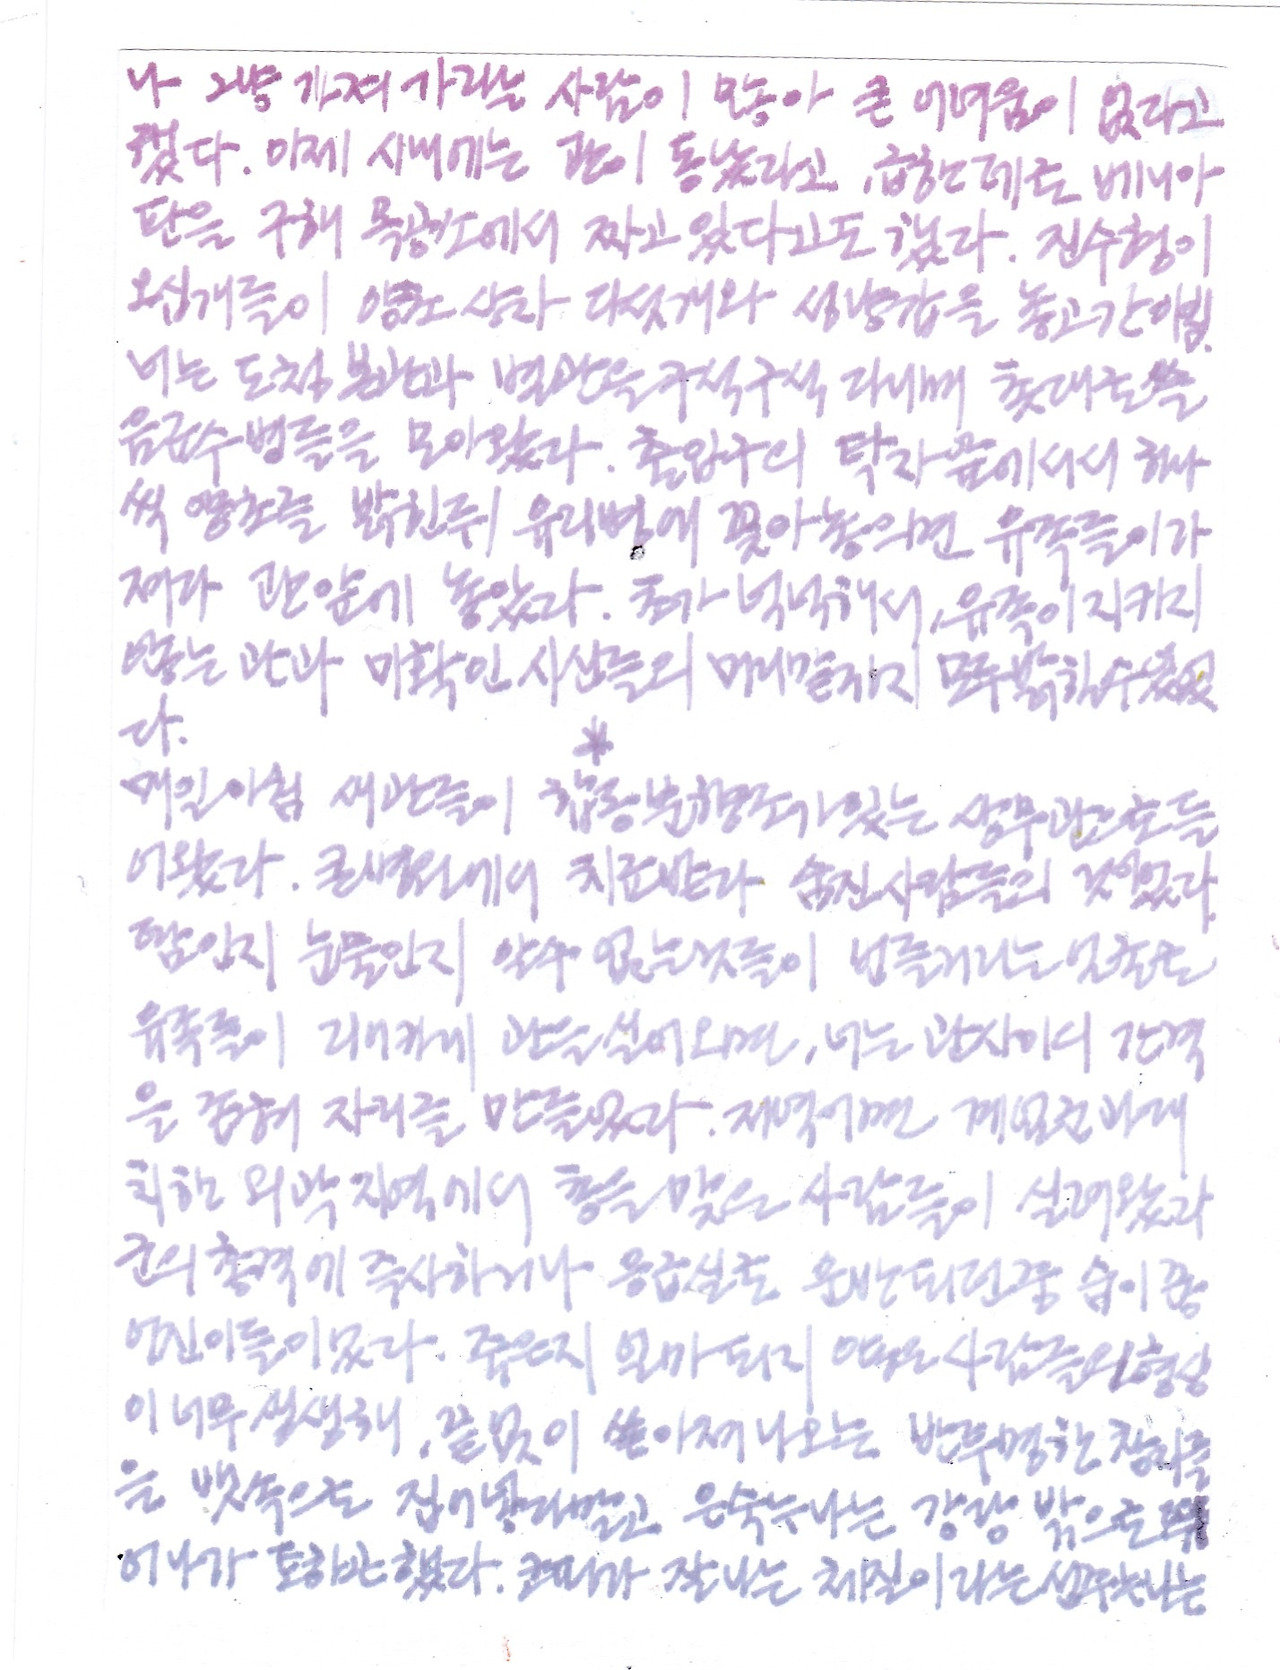 나 그냥 가져가라는 사람이 많아 큰 어려움이 없다고
했다. 이제 시내에는 관이 동났다고, 급한대로 베니아
판을 구해 목공소에서 짜고있다고도 했다. 진수형이
오십개들이 양초 상자 다섯개와 성냥갑을 놓고간아침,
너는 도청 본관과 별관을 구석구석 다니며 촛대로 쓸
음료수 병들을 모아왔다. 출입구의 탁자 앞에 서서 하나
씩 양초를 밝힌뒤 유리병에 꽂아놓으면 유족들이 가
져다 관앞에 놓았다. 초가 넉넉해서, 유족이 지키지
않는 관과 미확인 시신들의 머리맡까지 모두 밝힐수있었
다.
*
매일아침 새관들이 합동분향소가있는 상무관으로들
어왔다. 큰병원에서 치료받다 숨진사람들의 것이었다.
땀인지 눈물인지 알수 없는것들이 번들거리는 얼굴로
유족들이 리어카에 관을 실어오면, 너는 관사이의 간격
을 좁혀 자리를 만들었다. 저녁이면 계엄군과 대
치한 외곽지역에서 총을 맞은 사람들이 실려왔다
군의 총격에 즉사하거나 응급실로 운반되던중 숨이 끊
어진이들이었다. 죽은지 얼마 되지 않은 사람들의 형상
이 너무 생생해, 끝없이 쏟아져나오는 반투명한 창자들
을 뱃속으로 집어넣다말고 은숙누나는 강당 밖으로 뛰
어나가 토하곤했다. 코피가 잘나는 체질이라는 선주누나는